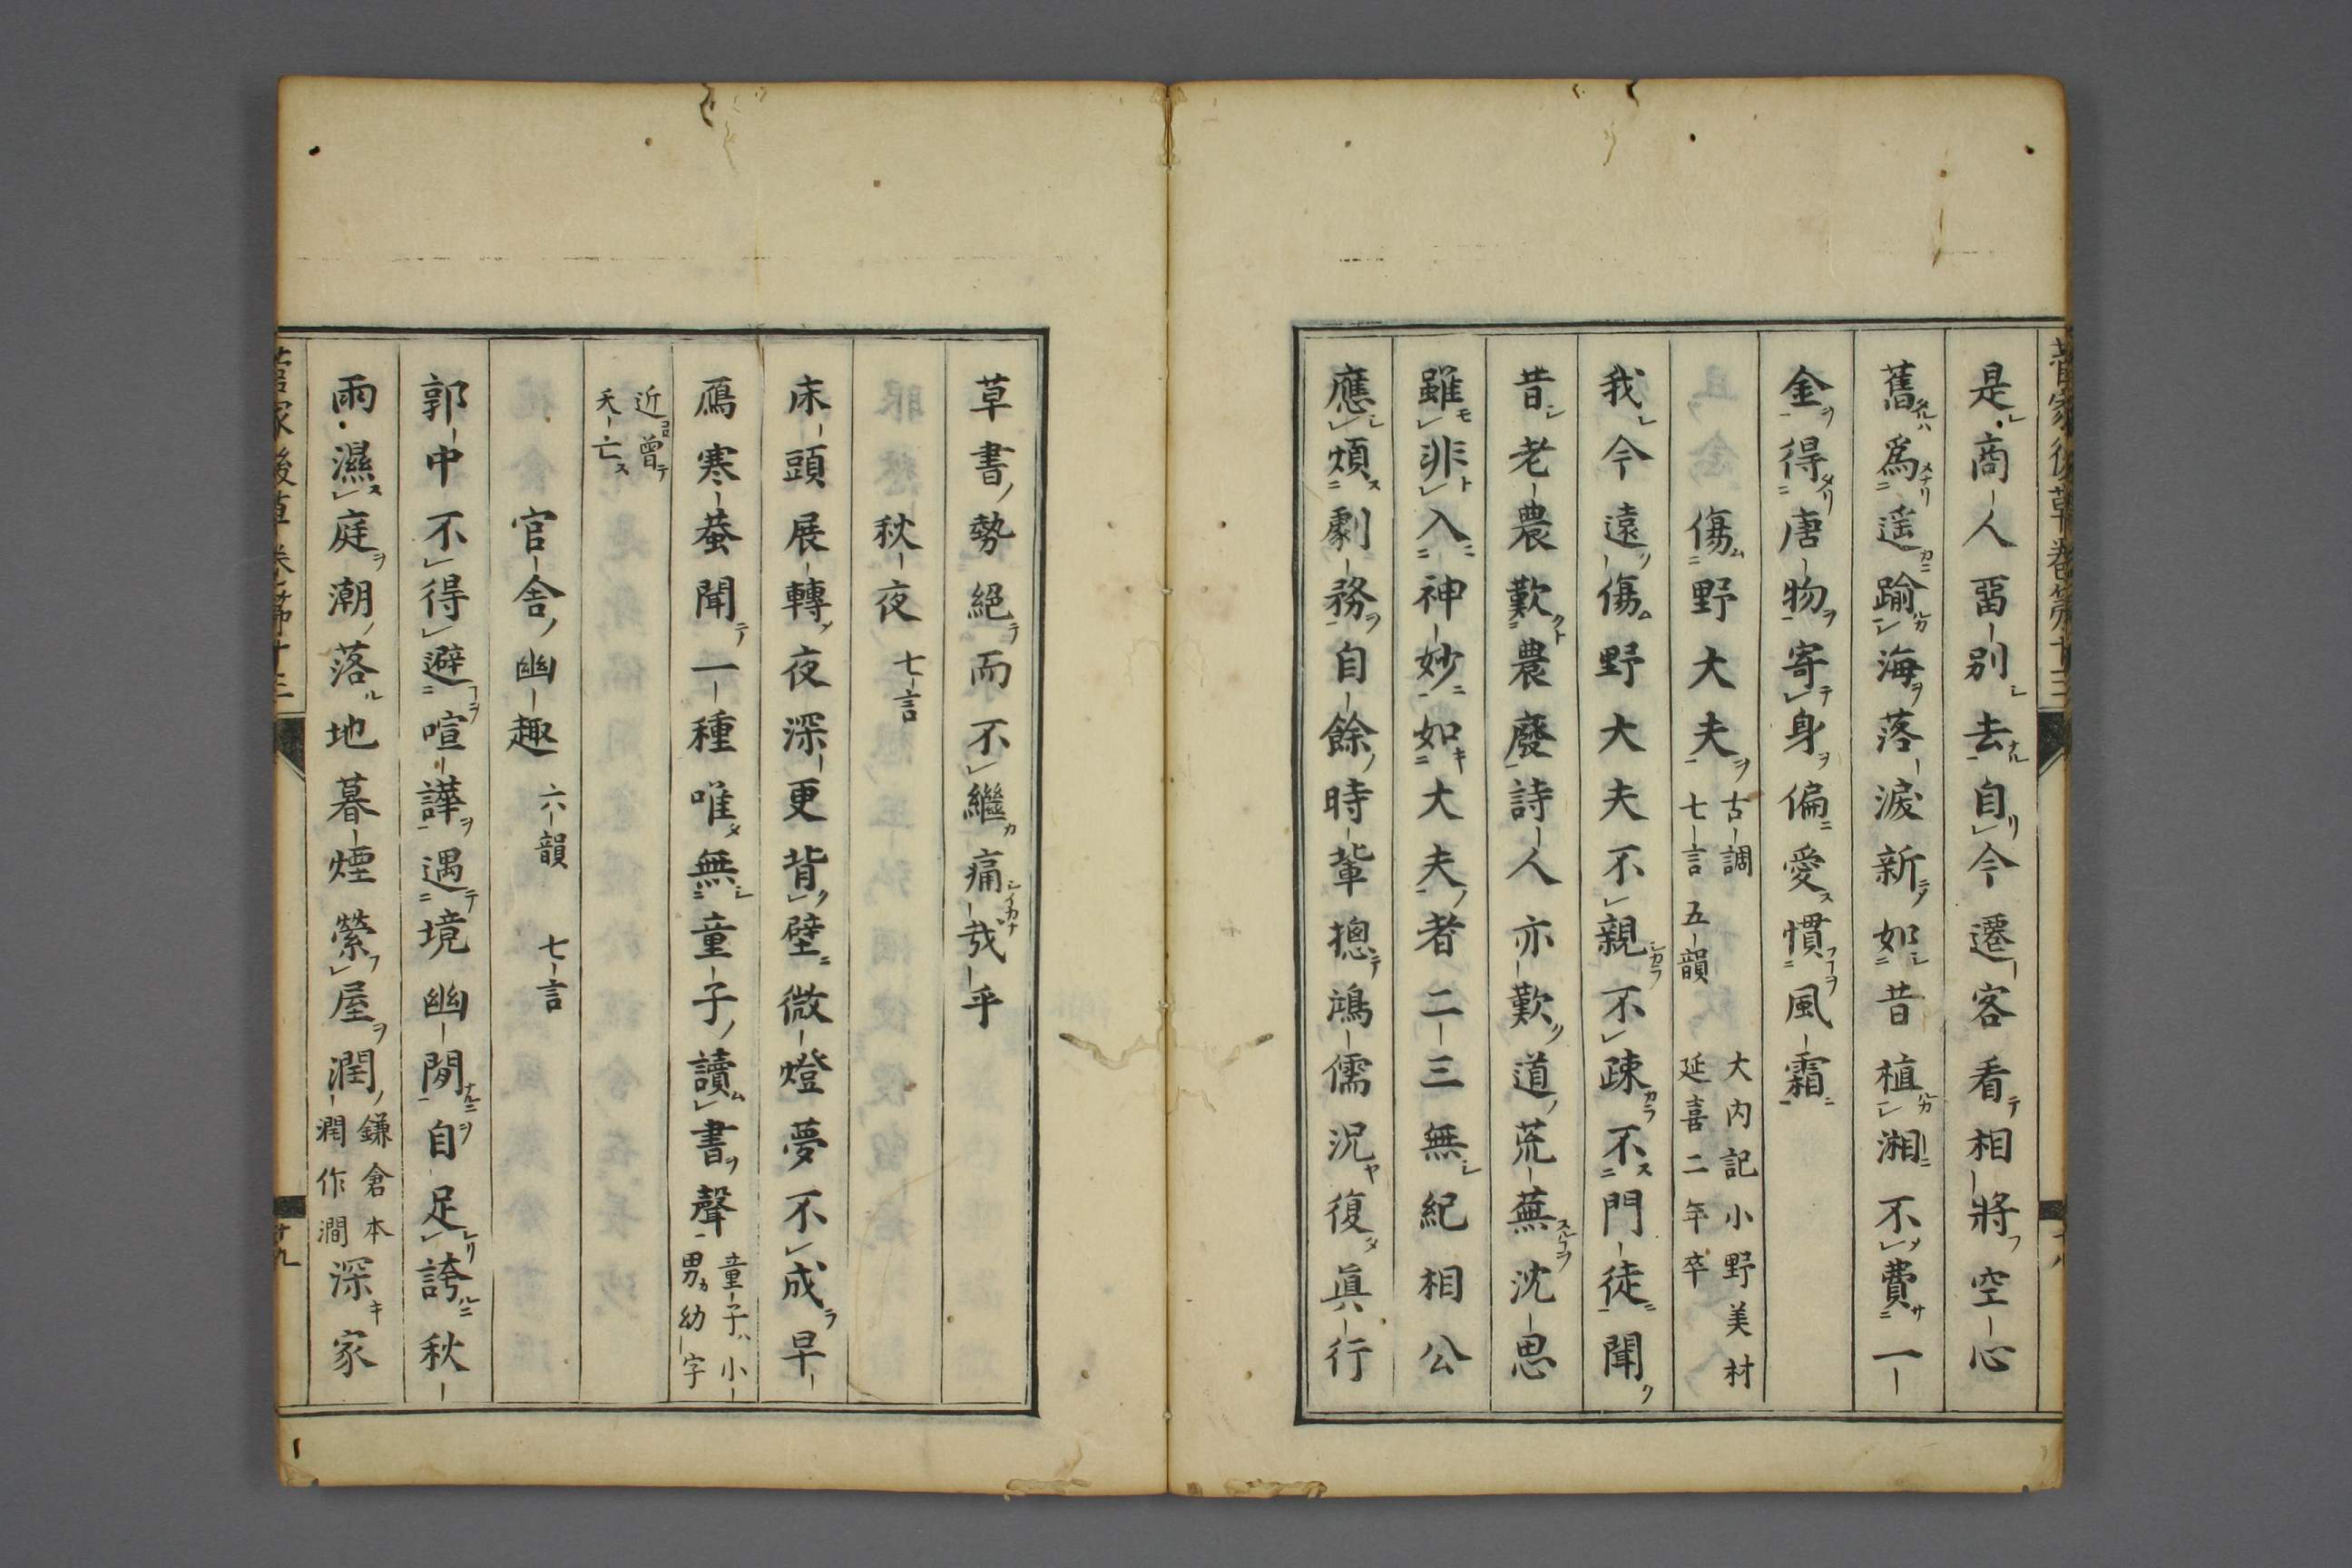 菅家後草卷第十三
是商人畱別去自今遷客看相將空心
舊爲遥踰海落淚新如昔植湘不費一
金得唐物寄身偏愛慣風霜
傷野大夫 古調七言五韻 大内記小野美材延喜二年卒
我今遠傷野大夫不親不疎不門徒聞
昔老農歎農廢詩人亦歎道荒蕪沈思
雖非入神妙如大夫者二三無紀相公
應煩劇務自餘時輩摠鴻儒況復眞行
草書勢絕而不繼痛哉乎
秋夜 七言
床頭展轉夜深更背壁微燈夢不成早
鴈寒蛬聞一種唯無童子讀書聲 童子ハ小男カ幼字
近曾テ夭亡ス
官舎ノ幽趣 六韻 七言
郭中不得避喧譁遇境幽閒自足誇秋
雨濕庭潮落地暮煙縈屋潤 鎌倉本潤作澗 深家
菅家後草卷第十三 十九